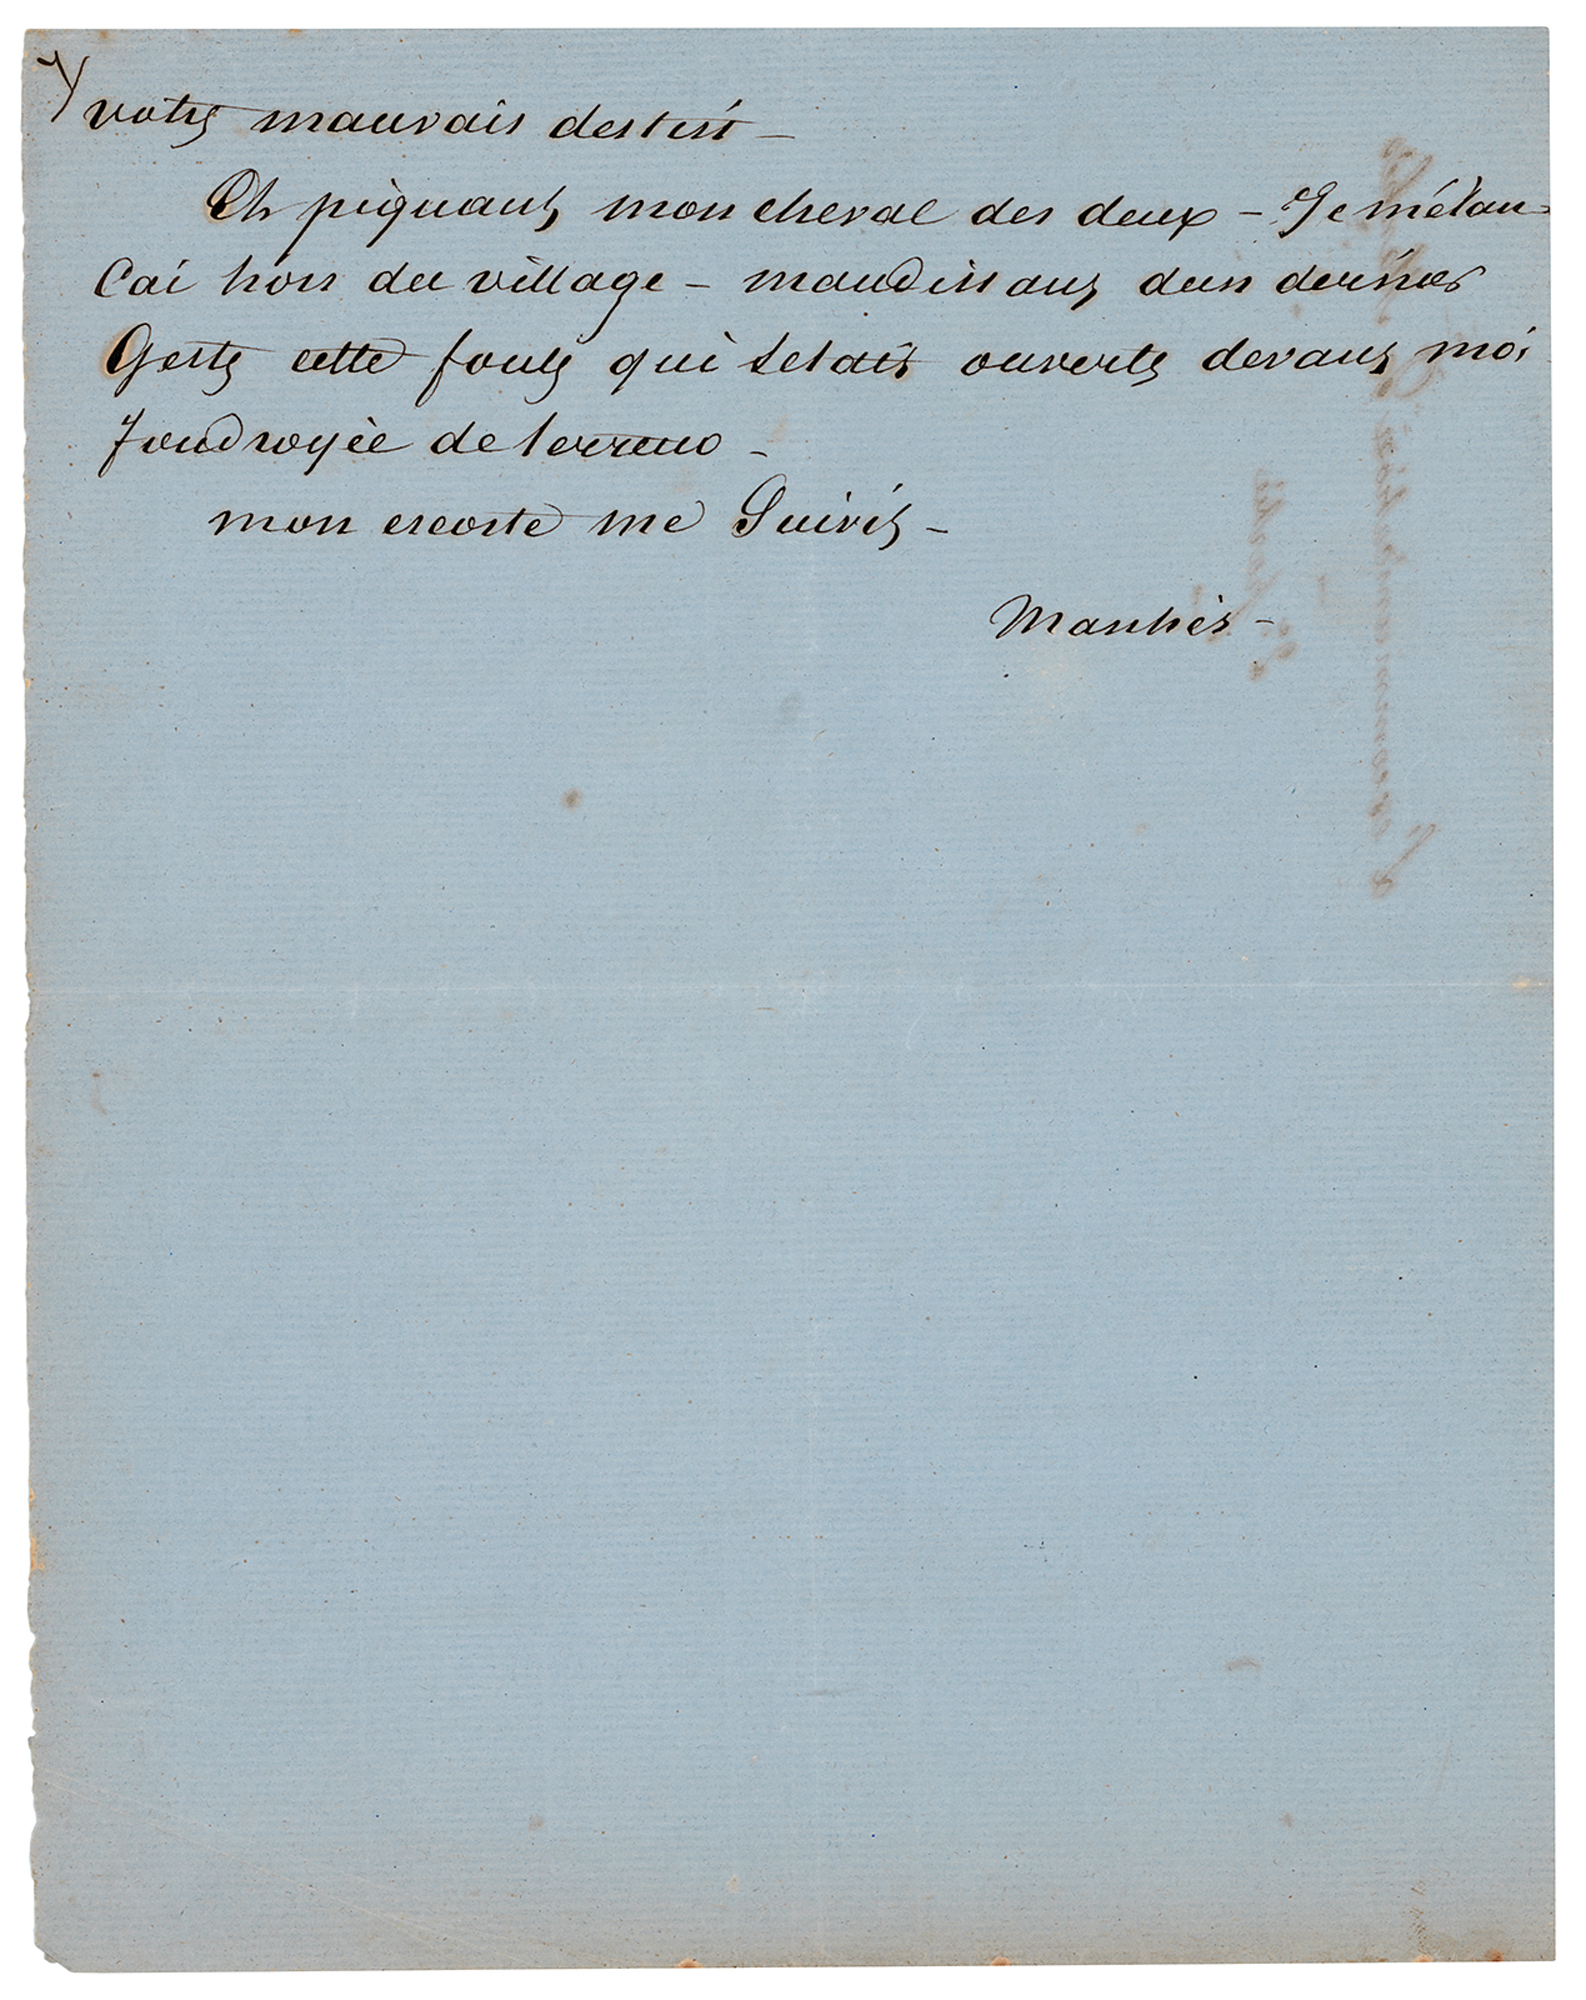 votre mauvais destin –
Et piquant mon cheval des deux – Je m'élan-
cai hors du village – maudissant d'un dernier
Geste cette foule qui s'etait ouverte devant moi
foudroyée de terreur –
mon escorte me Suivit –
Manhès –